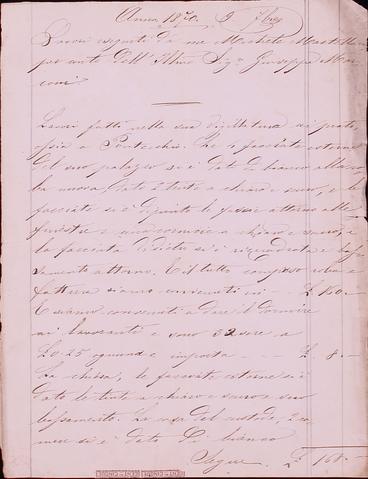 Anno 1870. 9 7bre
Lavori eseguiti da me Michele
per conto dell' Illmo Sigr Giuseppe Mar
coni
Lavori fatti nella sua villeggiatura ai prati,
ossia a Pontecchio. Le facciate esterne
del suo palazzo si è dato di bianco alla
la nuova, dato 2 tinte a chiaro scuro, e le
facciate si è dipinto le fascie attorno alle
finestre e una cornice a chiaro scuro, e
la facciata didietro si è riquadrata e
samento attorno. E il tutto compreso roba e
fattura siamo convenuti in - £ 160.-
E siamo convenuti a dare il dormire
ai lavoranti e sono 32 sere a
£0.25 ognuna importa - - - £ 8.-
La chiesa, le facciate esterne si è
dato le tinte a chiaro e scuro e suo
bassamento. La casa del custode, 2 ca
mere si è dato il bianco
Segue. £ 168.-